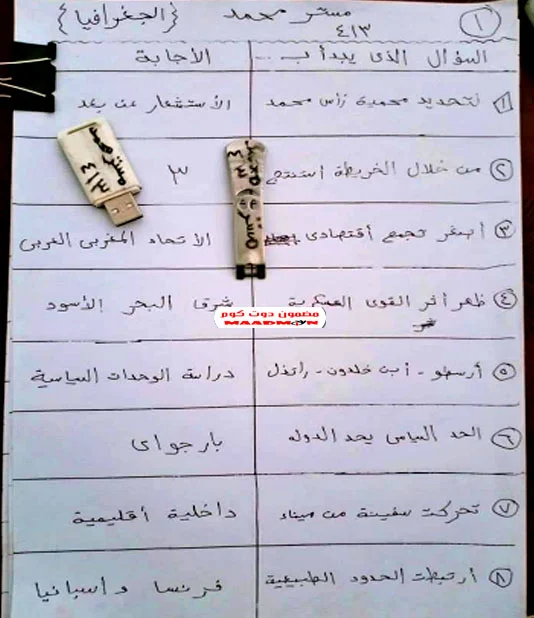 ١
مستر محمد
٤١٣
{الجغرافيا}
السؤال الذى يبدأ ب ... الأجابة
١ لتحديد محمية رأس محمد الأستشعار عن بعد
٢ من خلال الخريطة أستنتج ٣
٣ أصغر تجمع أقتصادى الأتحاد المغربى العربى
٤ ظهر أثر القوى العسكرية شرق البحر الأسود
٥ أرسطو - أبن خلدون - راتزل دراسة الوحدات السياسية
٦ الحد السياسى يحد الدوله بارجواى
٧ تحركت سفينة من ميناء داخلية أقليمية
٨ أرتبطت الحدود الطبيعية فرنسا وأسبانيا
مستر محمد
٤١٣
مستر
٤١٣
مضمون دوت كوم
MAADMOON